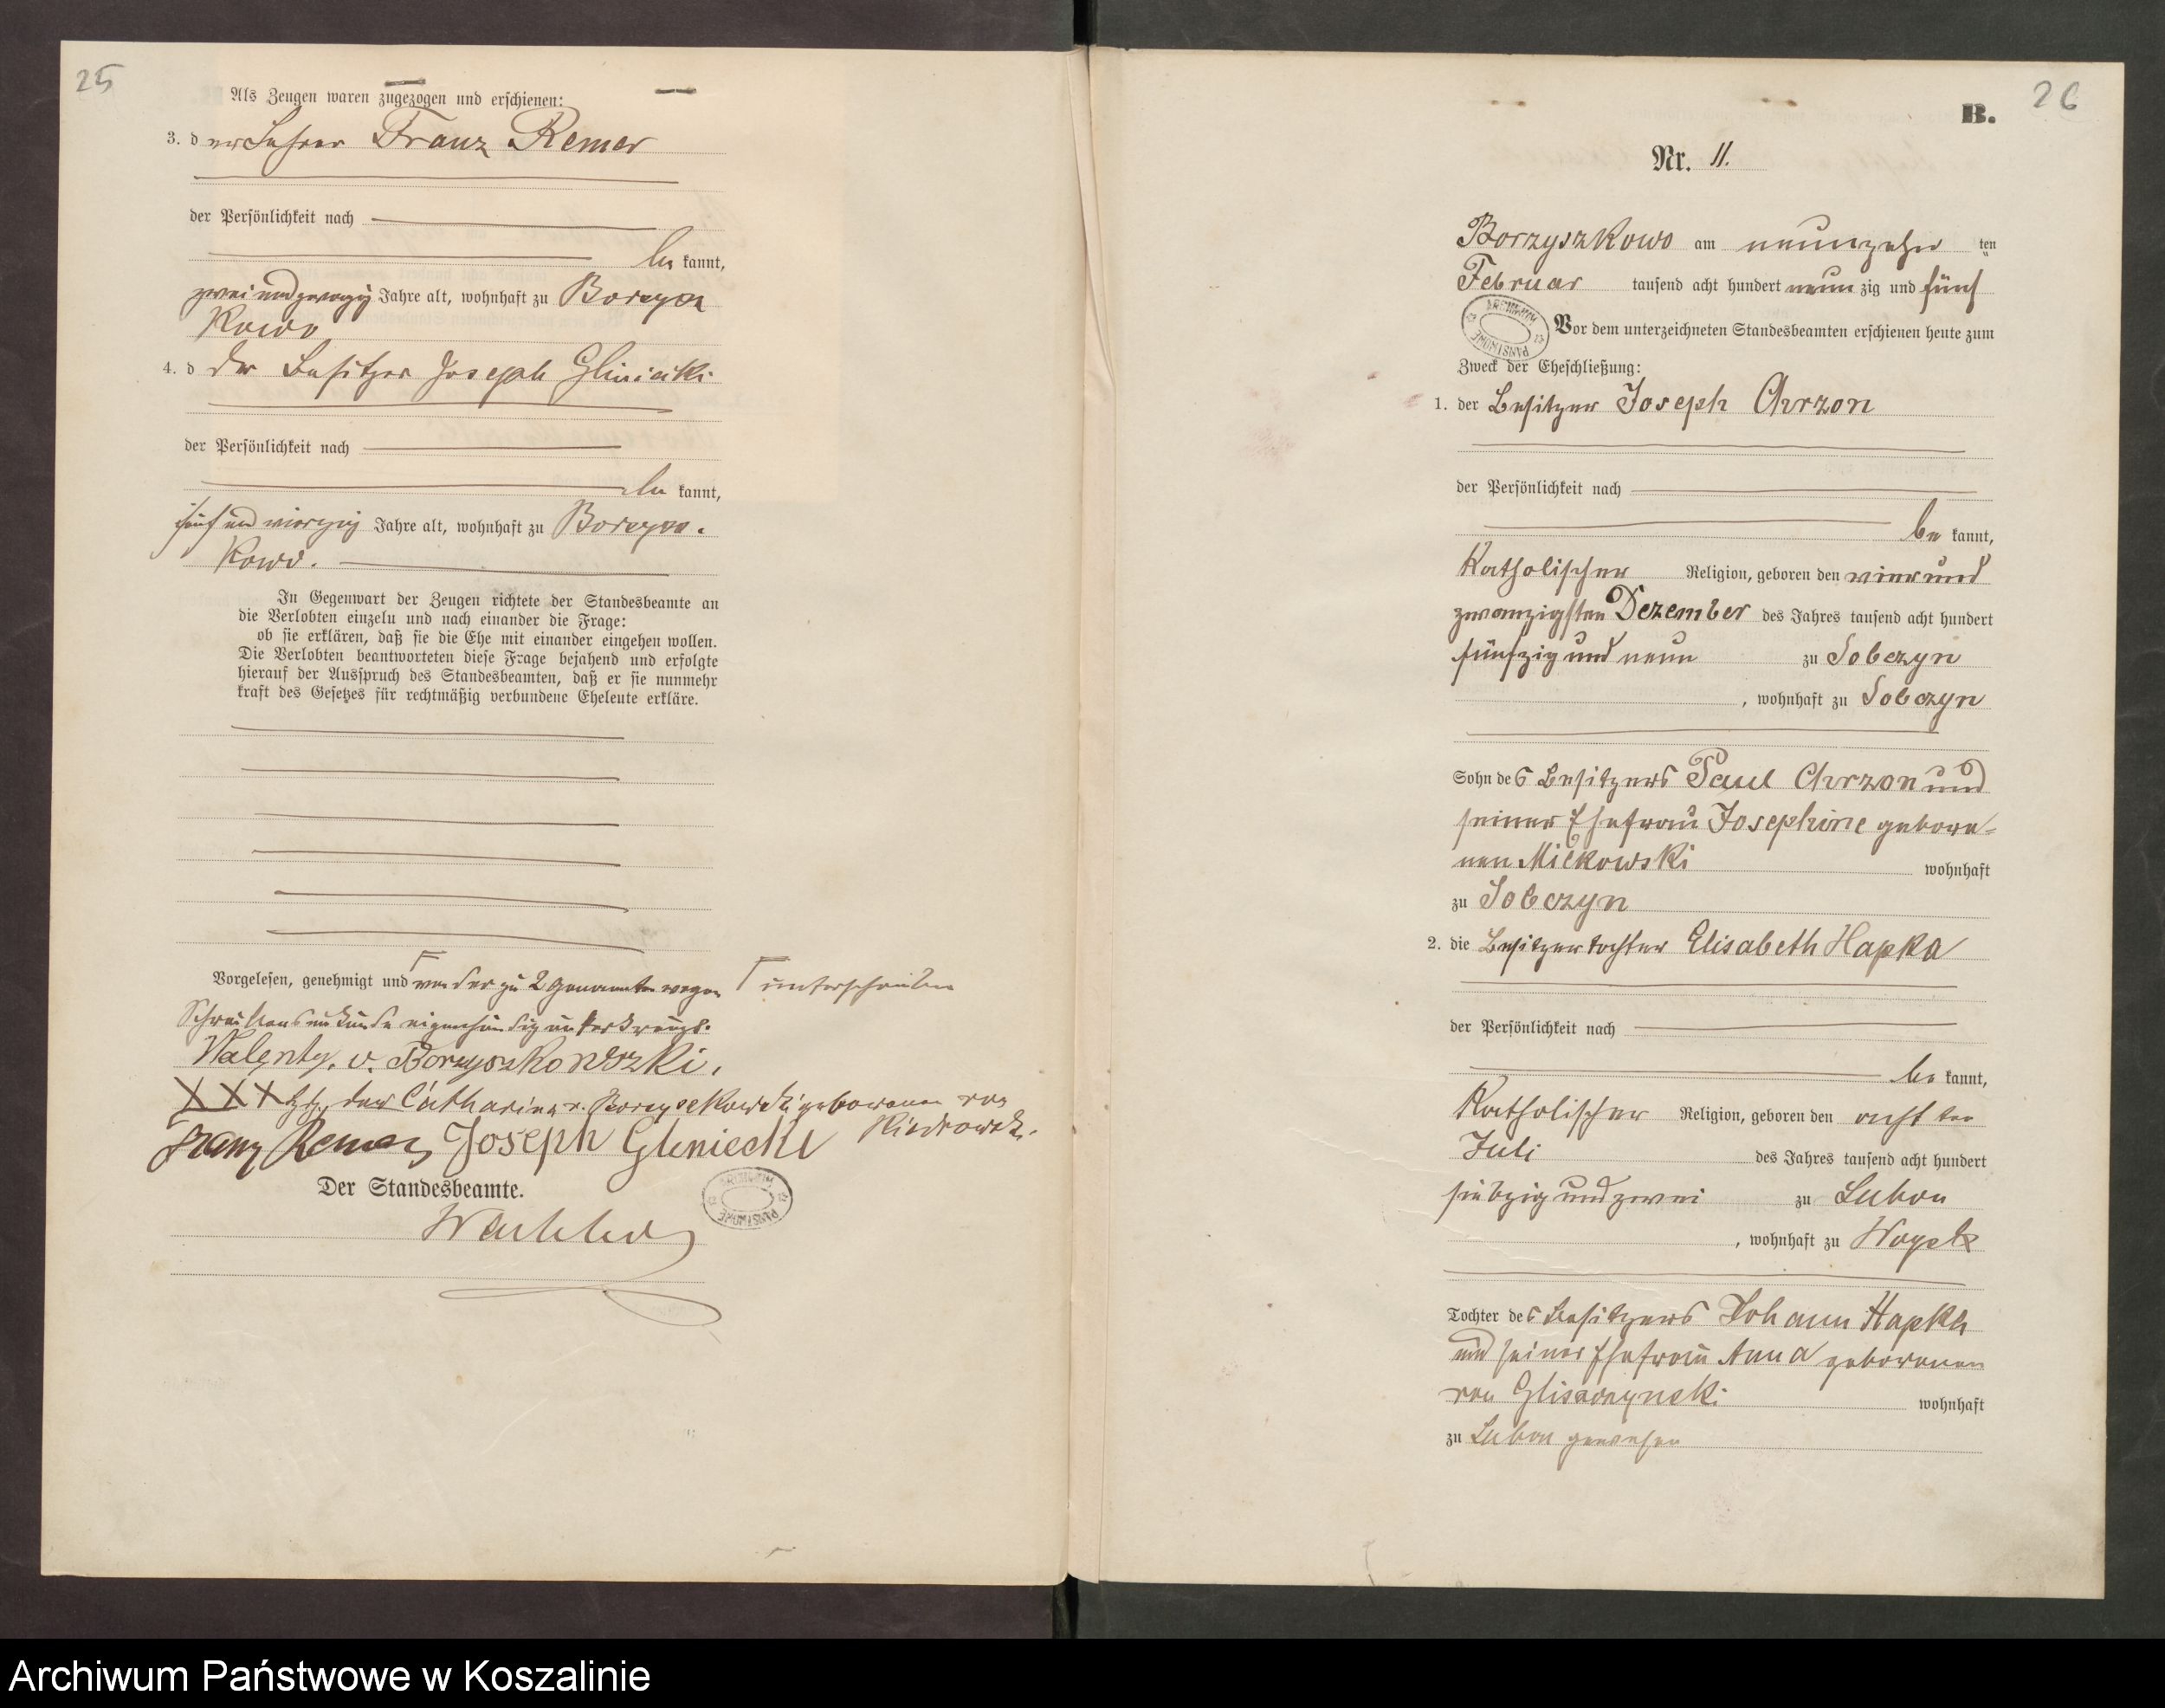 25
Als Zeugen waren zugezogen und erschienen:
3. der Lehrer Franz Remer
der Persönlichkeit nach
be kannt,
zwei und zwanzig Jahre alt, wohnhaft zu Borzysz
kowo
4. d der Besitzer Joseph Gliniecki
der Persönlichkeit nach
be kannt,
fünf und vierzig Jahre alt, wohnhaft zu Borzysz-
kowo.
In Gegenwart der Zeugen richtete der Standesbeamte an
die Verlobten einzeln und nach einander die Frage:
ob sie erklären, daß sie die Ehe mit einander eingehen wollen.
Die Verlobten beantworteten diese Frage bejahend und erfolgte
hierauf der Ausspruch des Standesbeamten, daß er sie nunmehr
kraft des Gesetzes für rechtmäßig verbundene Eheleute erkläre.
Vorgelesen, genehmigt und von der zu 2 Genannten wegen unterschrieben
Schreibensunkunde eigenhändig unterkreuzt.
Walenty. v. Borzyszkowszki.
XXX der Catharina v. Borzyszkowski geborenen von
Kiedrowski.
Franz Remer Joseph Gliniecki
Der Standesbeamte.
26
B.
Nr. 11.
Borzyszkowo am neunzehn ten
Februar tausend acht hundert neun zig und fünf
Vor dem unterzeichneten Standesbeamten erschienen heute zum
Zweck der Eheschließung:
1. der Besitzer Joseph Chrzon
der Persönlichkeit nach
be kannt,
Katholischer Religion, geboren den vier und
zwanzigsten Dezember des Jahres tausend acht hundert
fünfzig und neun zu Sobczyn
, wohnhaft zu Sobczyn
Sohn des Besitzers Paul Chrzon und
seiner Ehefrau Josephine gebore-
nen Milkowski wohnhaft
zu Sobczyn
2. die Besitzertochter Elisabeth Hapka
der Persönlichkeit nach
be kannt,
Katholischer Religion, geboren den achten
Juli des Jahres tausend acht hundert
siebzig und zwei zu Lubon
, wohnhaft zu
Tochter des Besitzers Johann Hapka
und seiner Ehefrau Anna geborenen
von Glisczynski wohnhaft
zu Lubon gewesen
ARCHIWUM PAŃSTWOWE
Archiwum Państwowe w Koszalinie